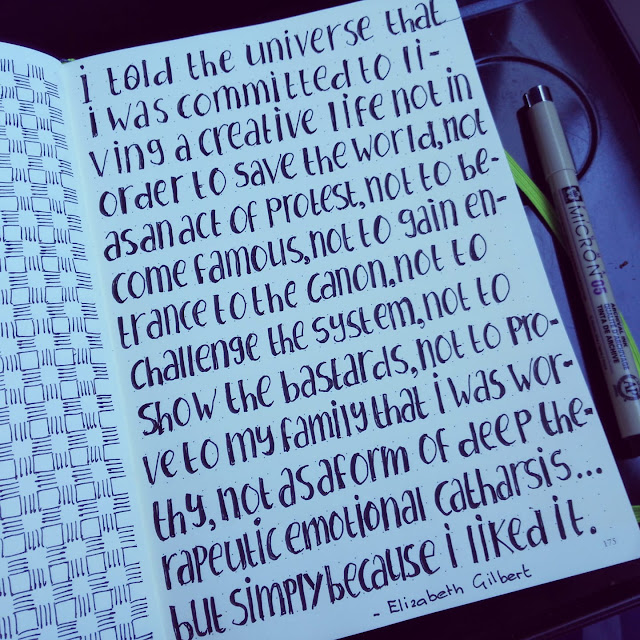 i told the universe that
i was committed to li-
ving a creative life not in
order to save the world, not
as an act of protest, not to be-
come famous, not to gain en-
trance to the canon, not to
challenge the system, not to
show the bastards, not to pro-
ve to my family that i was wor-
thy, not as a form of deep the-
rapeutic emotional catharsis...
but simply because i liked it.
- Elizabeth Gilbert
173
MICRON